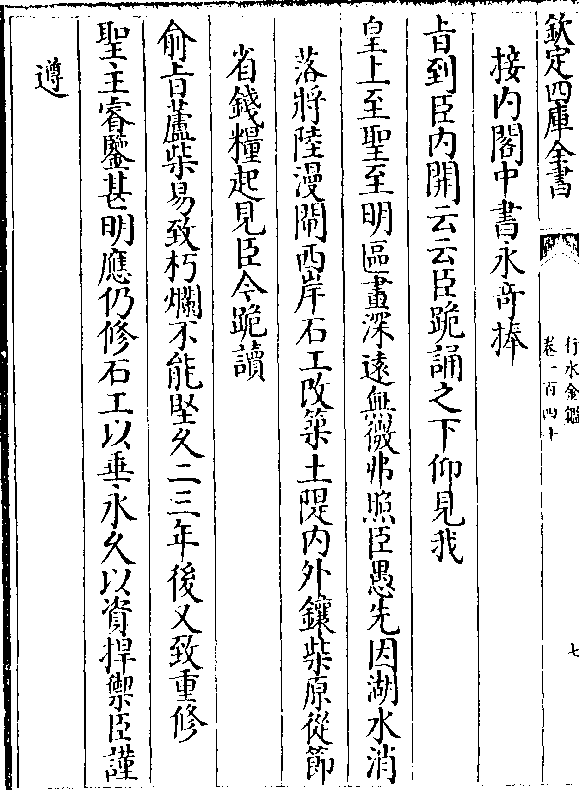 欽定四庫全書
行水金鑑
卷一百四十
七
接内閣中書永竒捧
旨到臣内開云云臣跪誦之下仰見我
皇上至聖至明區畫深遠無微弗照臣愚先因湖水消
落將陸漫閘西岸石工改築土隄内外鑲柴原從節
省錢糧起見臣今跪讀
俞旨蘆柴易致朽爛不能堅久二三年後又致重修
聖主睿鑒甚明應仍修石工以垂永久以資捍禦臣謹
遵